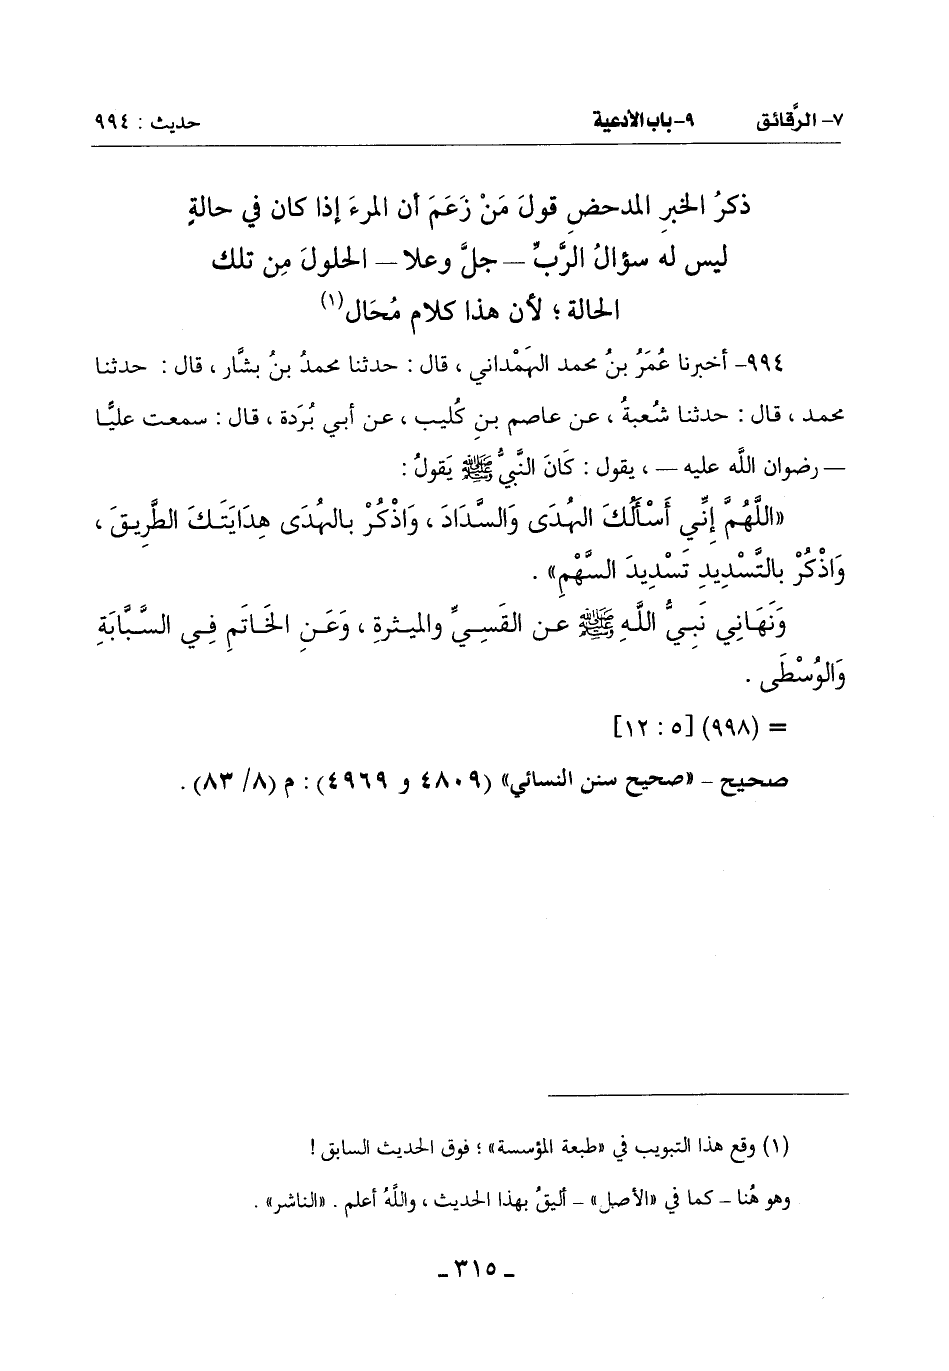 ٧- الرَّقائق ٩- باب الأدعية حديث : ٩٩٤
ذكرُ الخبرِ المدحضِ قولَ مَنْ زَعَمَ أن المرءَ إذا كان في حالةٍ
ليس له سؤالُ الرَّبِّ – جلَّ وعلا – الحلولَ مِن تلك
الحالة ؛ لأن هذا كلام مُحَال(١)
٩٩٤- أخبرنا عُمَرُ بنُ محمد الهَمْداني ، قال : حدثنا محمدُ بنُ بشَّار ، قال : حدثنا
محمد ، قال : حدثنا شُعبةُ ، عن عاصم بنِ كُليب ، عن أبي بُرَدة ، قال : سمعت عليًّا
– رضوان الله عليه – ، يقول : كَانَ النَّبيُّ ﷺ يَقولُ :
«اللَّهُمَّ إِنِّي أَسْأَلُكَ الهُدَى وَالسَّدَادَ ، وَاذْكُرْ بالهُدَى هِدَايَتَكَ الطَّرِيقَ ،
وَاذْكُرْ بالتَّسْدِيدِ تَسْدِيدَ السَّهْمِ» .
وَنَهَانِي نَبِيُّ اللَّهِ ﷺ عن القَسِيِّ والميثرةِ ، وَعَنِ الخَاتَمِ فِي السَّبَّابَةِ
وَالوُسْطَى .
= (٩٩٨) [٥ : ١٢]
صحيح - «صحيح سنن النسائي» (٤٨٠٩ و ٤٩٦٩) : م (٨/ ٨٣) .
(١) وقع هذا التبويب في «طبعة المؤسسة» ؛ فوق الحديث السابق !
وهو هُنا - كما في «الأصل» - أليقُ بهذا الحديث ، واللَّهُ أعلم . «الناشر» .
- ٣١٥ -